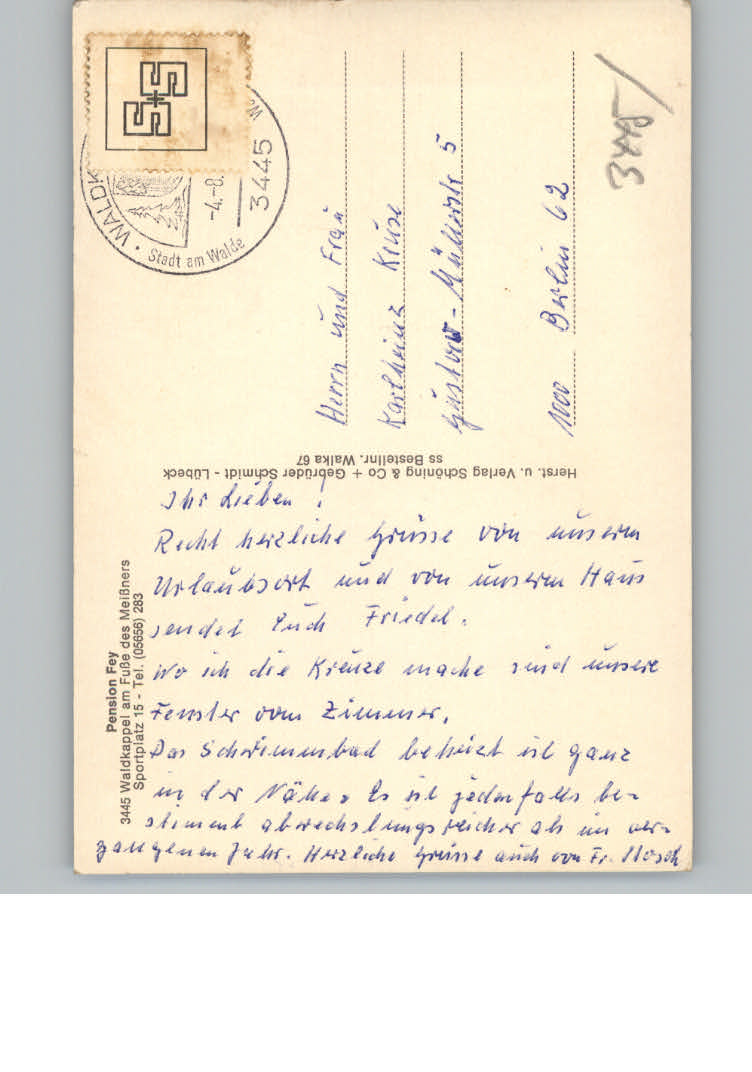 WALDK
Stadt am Walde
-4.-8.
3445
Herrn und Frau
Karlheinz Kruse
Gustav-Müllerstr 5
1000 Berlin 62
3448/
Herst. u. Verlag Schöning & Co + Gebrüder Schmidt - Lübeck
ss Bestellnr. Walka 67
Pension Fey
3445 Waldkappel am Fuße des Meißners
Sportplatz 15 - Tel. (05656) 283
Ihr Lieben!
Recht herzliche Grüsse von unserm
Urlaubsort und von unserem Haus
sendet Euch Friedel.
Wo ich die Kreuze mache sind unsere
Fenster vom Zimmer.
Das Schwimmbad beheizt ist ganz
in der Nähe. Es ist jedenfalls be-
stimmt abwechslungsreicher als im ver-
gangenen Jahr. Herzliche Grüsse auch von Fr. Mosch